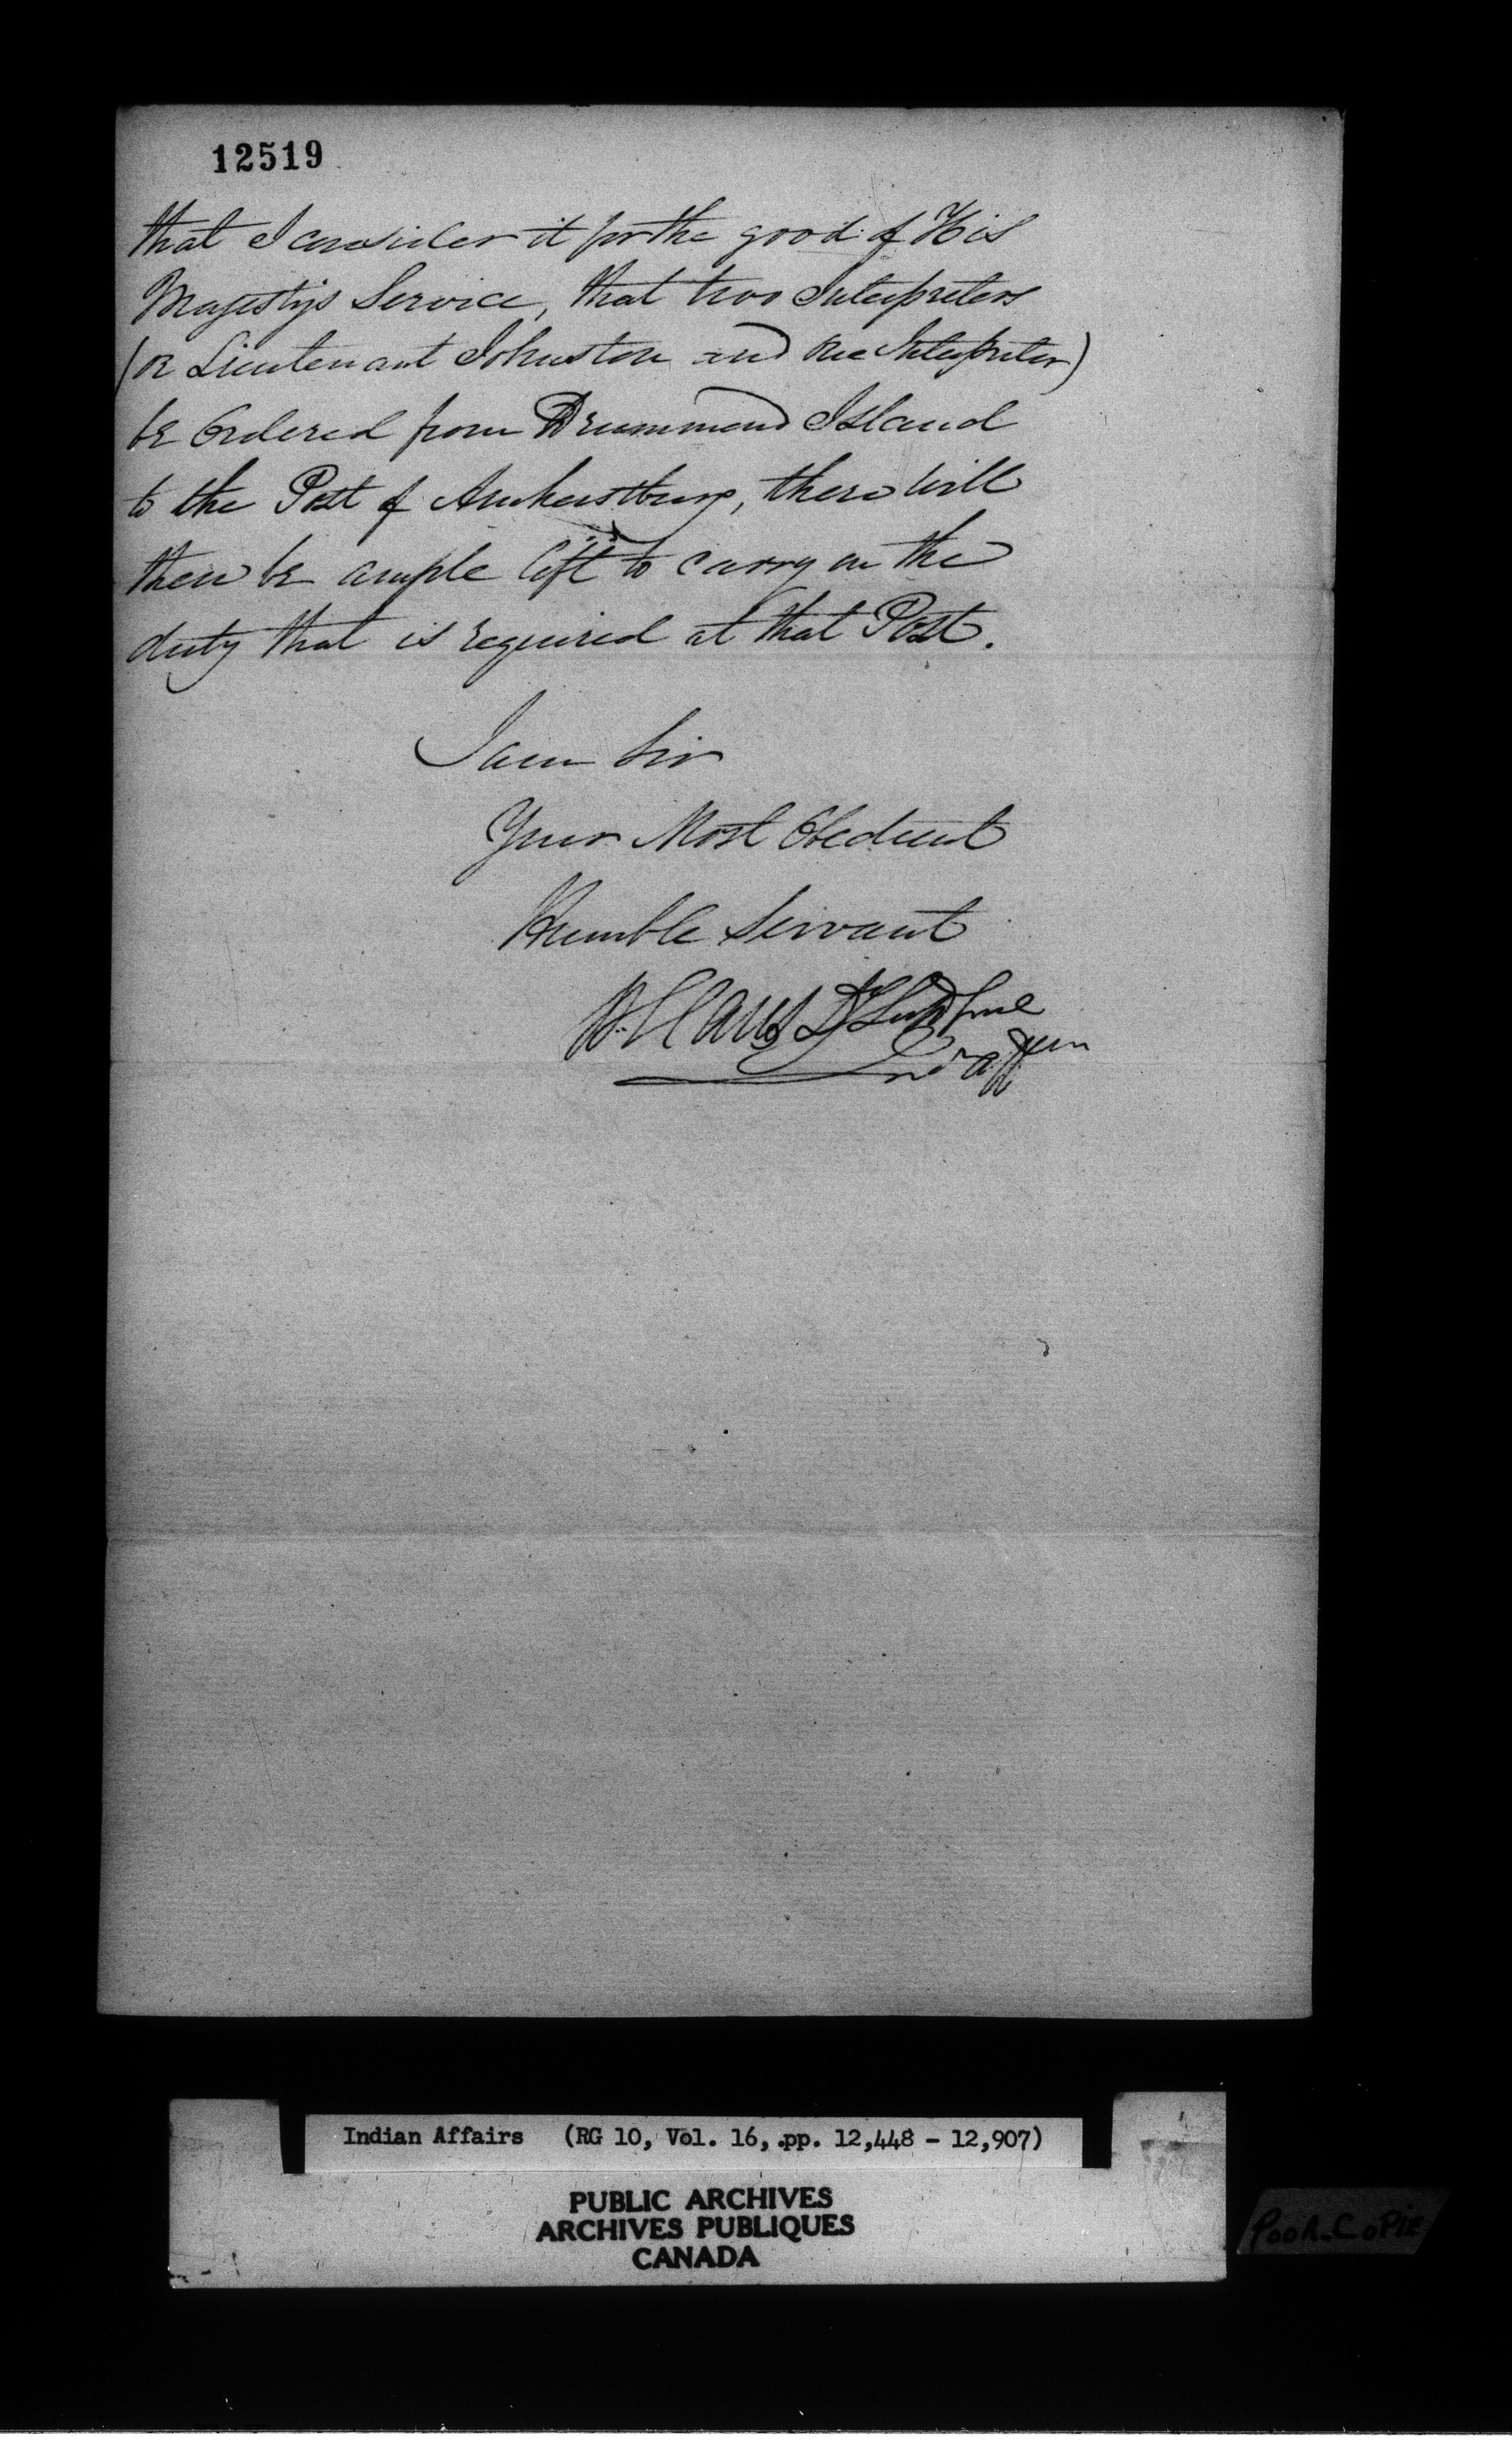 12519
that I consider it for the good of His
Majesty's Service, that two Interpreters
(or Lieutenant Johnston and one Interpreter)
be Ordered from Drummond Island
to the Post of Amherstburg, there will
then be ample left to carry on the
duty that is required at that Post.
I am Sir
Your Most Obedient
Humble Servant
W. Claus Dy Supt Genl
Ind Affairs
Indian Affairs (RG 10, Vol. 16, pp. 12,448 - 12,907)
PUBLIC ARCHIVES
ARCHIVES PUBLIQUES
CANADA
POOR COPIE